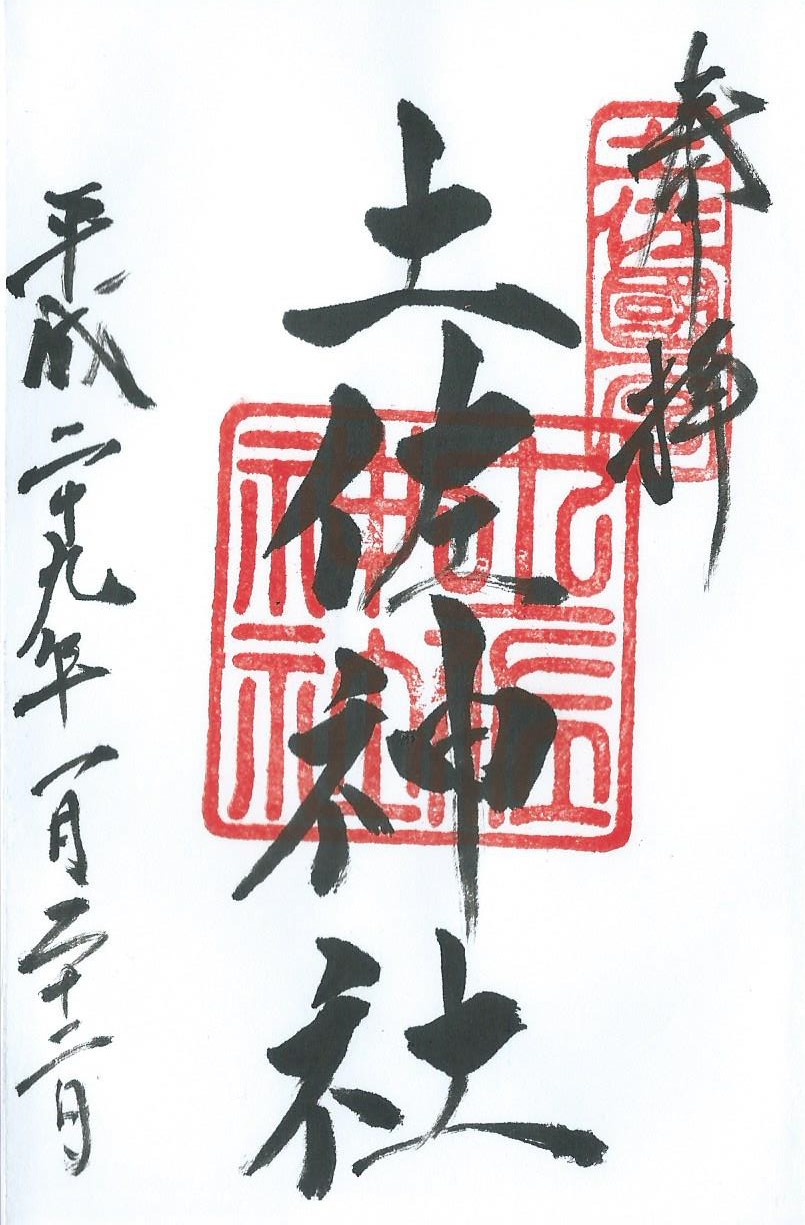 奉拝
土佐國一宮
土佐神社
土佐神社
平成二十九年一月二十二日